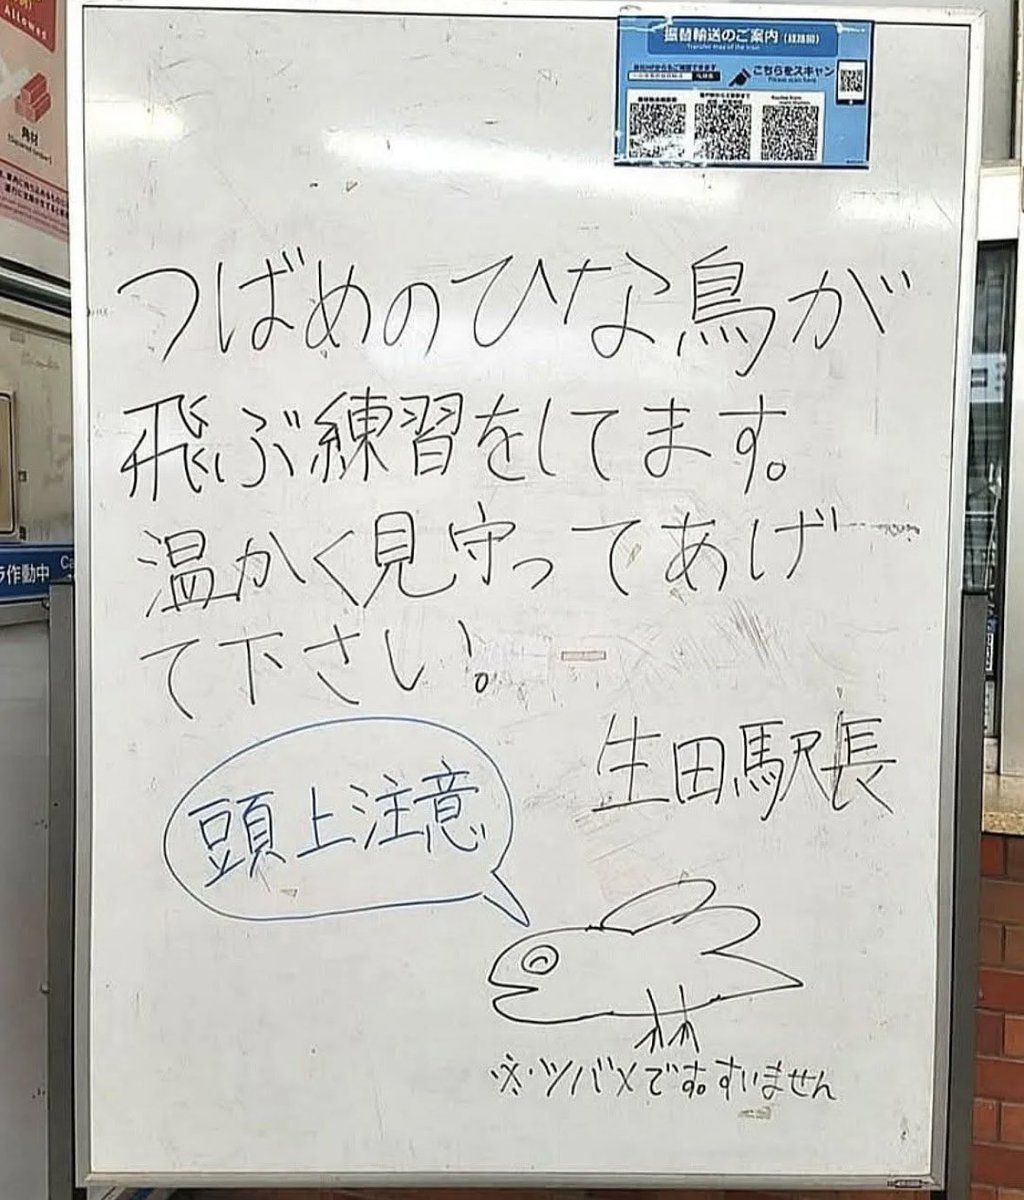 Allowed
角材
振替輸送のご案内（経路図）
Transfer map of the train
こちらをスキャン
Please scan here
つばめのひな鳥が
飛ぶ練習をしてます。
温かく見守ってあげ
て下さい。
生田駅長
頭上注意
※ツバメです。すいません
ラ作動中
Ca